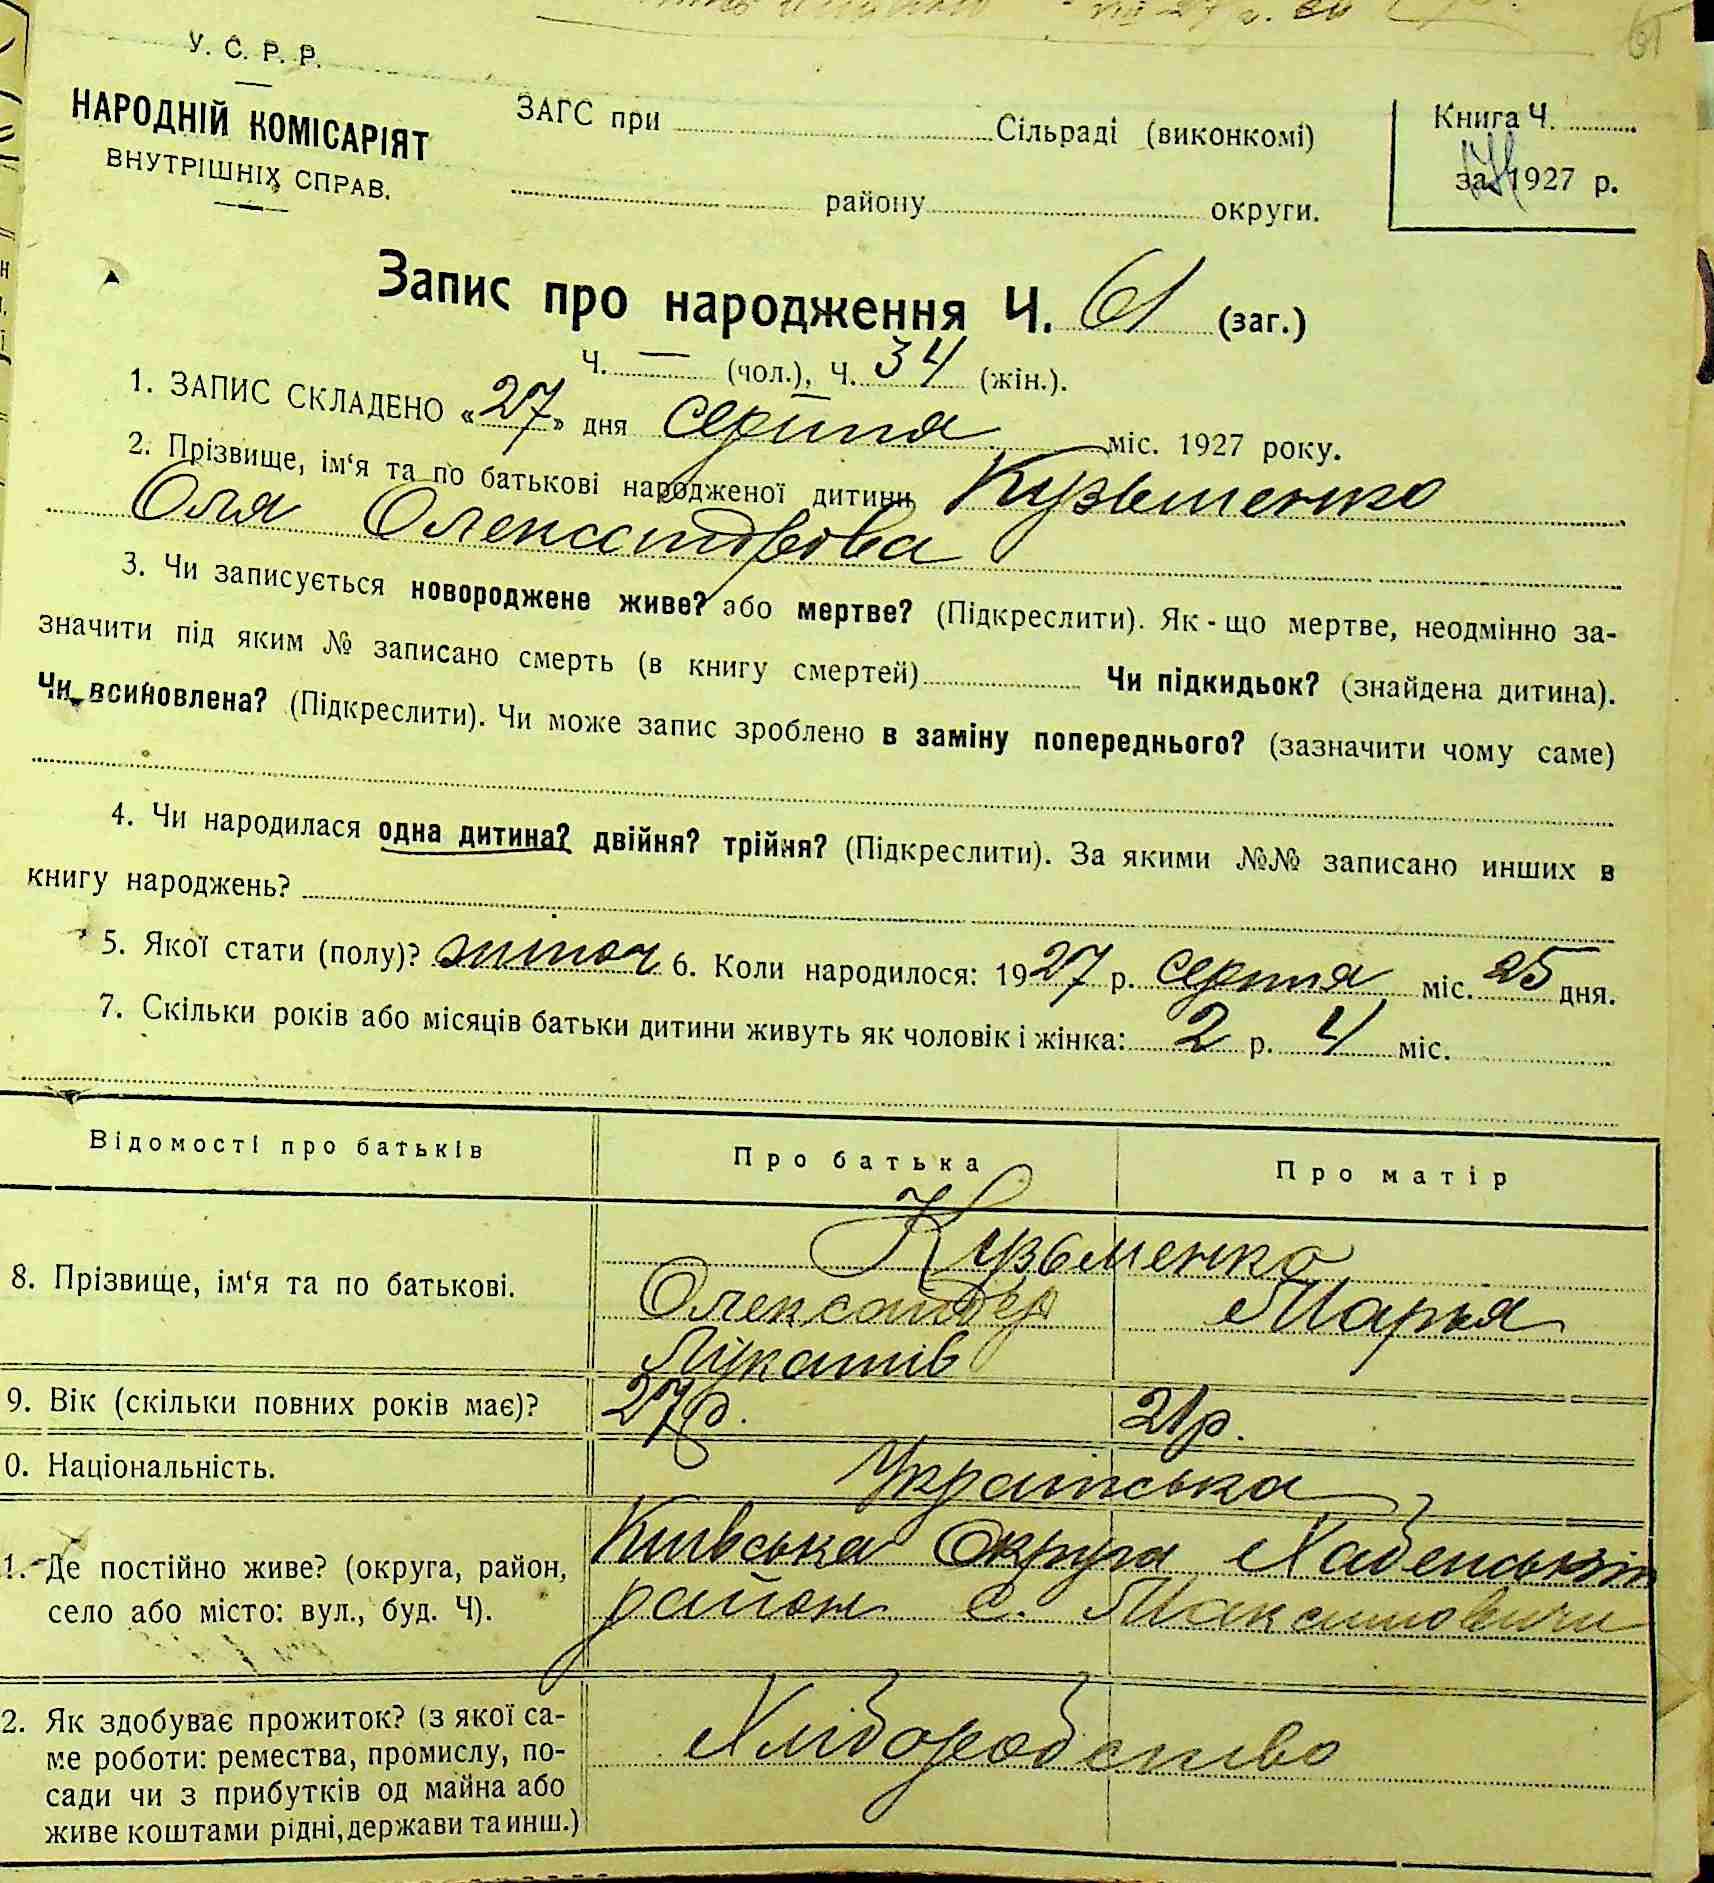 У. С. Р. Р.
НАРОДНІЙ КОМІСАРІЯТ
ВНУТРІШНІХ СПРАВ.
ЗАГС при Сільраді (виконкомі)
району округи.
Книга Ч.
за 1927 р.
Запис про народження Ч. 61 (заг.)
Ч. — (чол.), Ч. 34 (жін.).
1. ЗАПИС СКЛАДЕНО «27» дня серпня міс. 1927 року.
2. Прізвище, ім‘я та по батькові народженої дитини Кузьменко
Оля Олександрова
3. Чи записується новороджене живе? або мертве? (Підкреслити). Як - що мертве, неодмінно за-
значити під яким № записано смерть (в книгу смертей) Чи підкидьок? (знайдена дитина).
Чи всиновлена? (Підкреслити). Чи може запис зроблено в заміну попереднього? (зазначити чому саме)
4. Чи народилася одна дитина? двійня? трійня? (Підкреслити). За якими №№ записано инших в
книгу народжень?
5. Якої стати (полу)? жіноч 6. Коли народилося: 1927 р. серпня міс. 25 дня.
7. Скільки років або місяців батьки дитини живуть як чоловік і жінка: 2 р. 4 міс.
Відомості про батьків Про батька Про матір
Кузьменко
8. Прізвище, ім‘я та по батькові. Олександер Марья
Лукашів
9. Вік (скільки повних років має)? 27р. 21р.
0. Національність. Українська
Київська Округа Хабенський
1. Де постійно живе? (округа, район,
село або місто: вул., буд. Ч). район с. Максимовичи
2. Як здобуває прожиток? (з якої са- Хліборобство
ме роботи: ремества, промислу, по-
сади чи з прибутків од майна або
живе коштами рідні, держави та инш.)